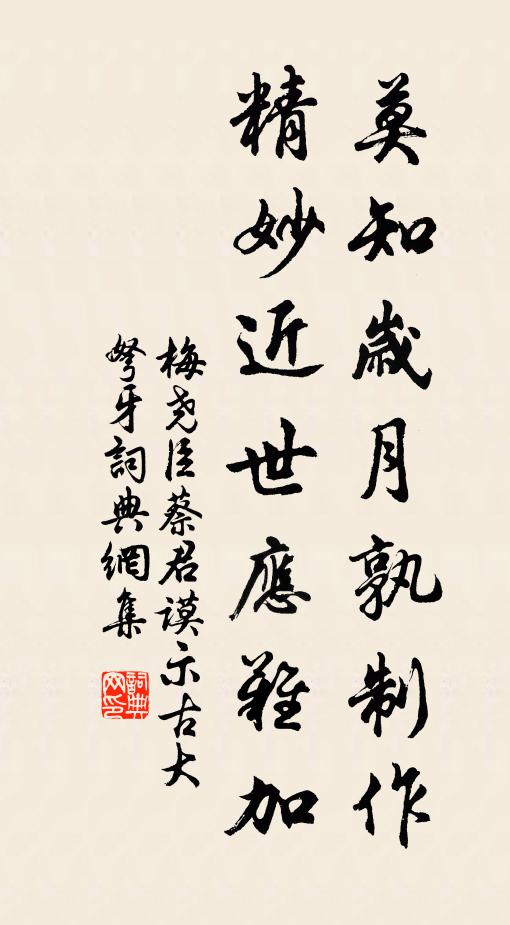 莫知歲月孰制作
精妙近世應難加
梅尧臣蔡君謨示古大
弩牙詞典網集
詞典网印